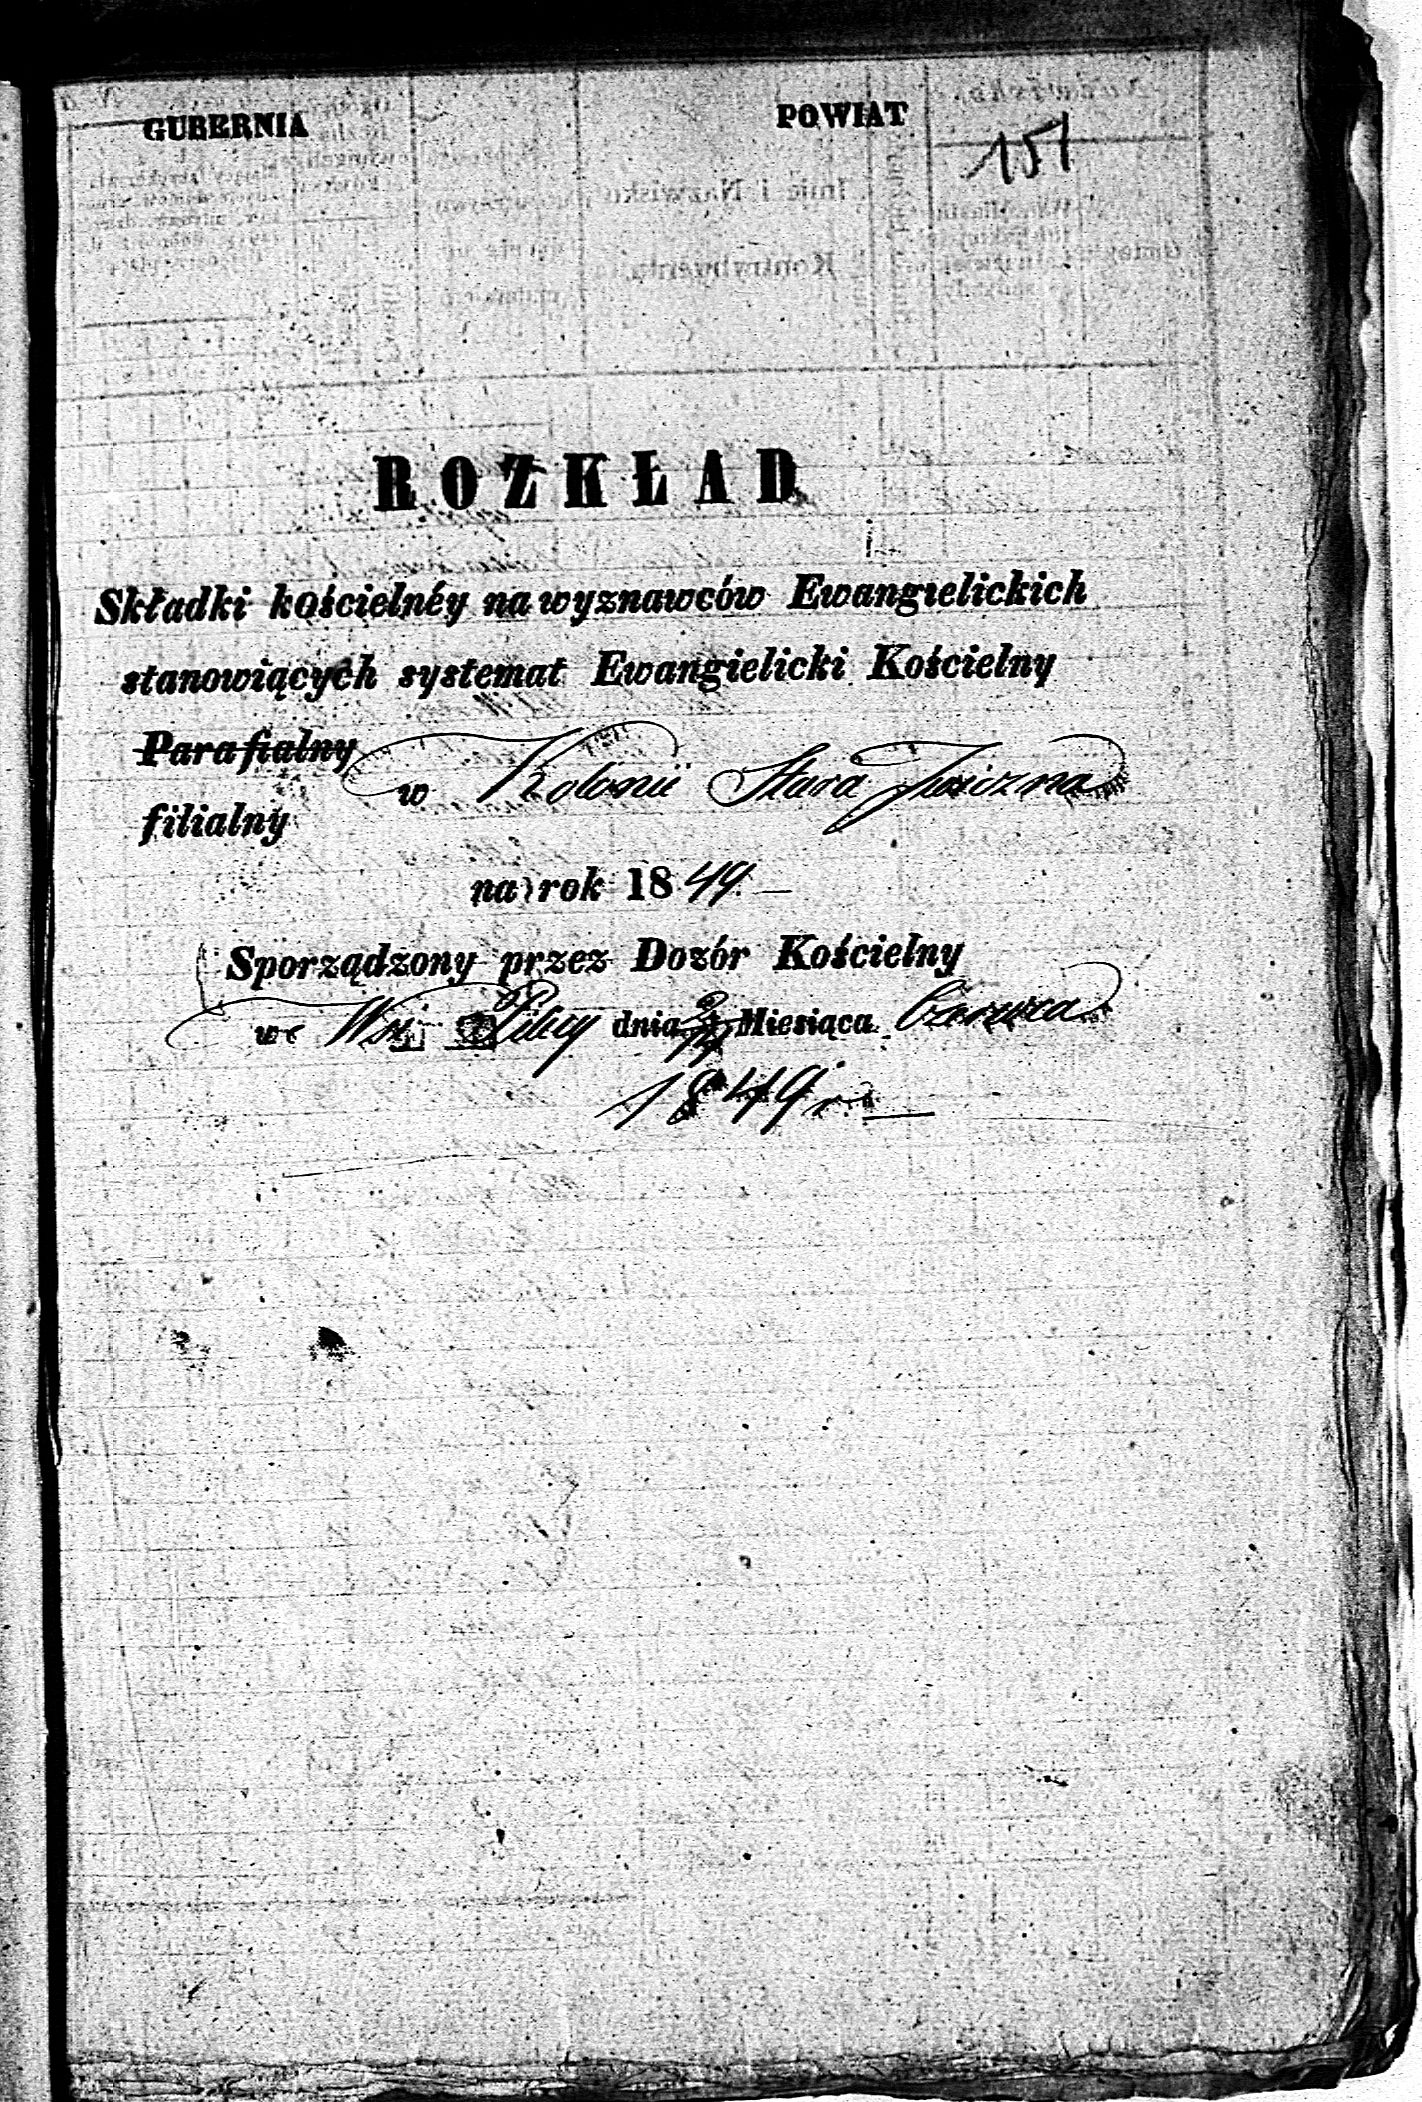 GUBERNIA POWIAT
151
ROZKŁAD
Składki kościelnéy na wyznawców Ewangielickich
stanowiących systemat Ewangielicki Kościelny
Parafialny
w Kolonii Stara Iwiczna
filialny
na rok 1849.
Sporządzony przez Dozór Kościelny
we Wsi Pilicy dnia Miesiąca Czerwca
1849 r.